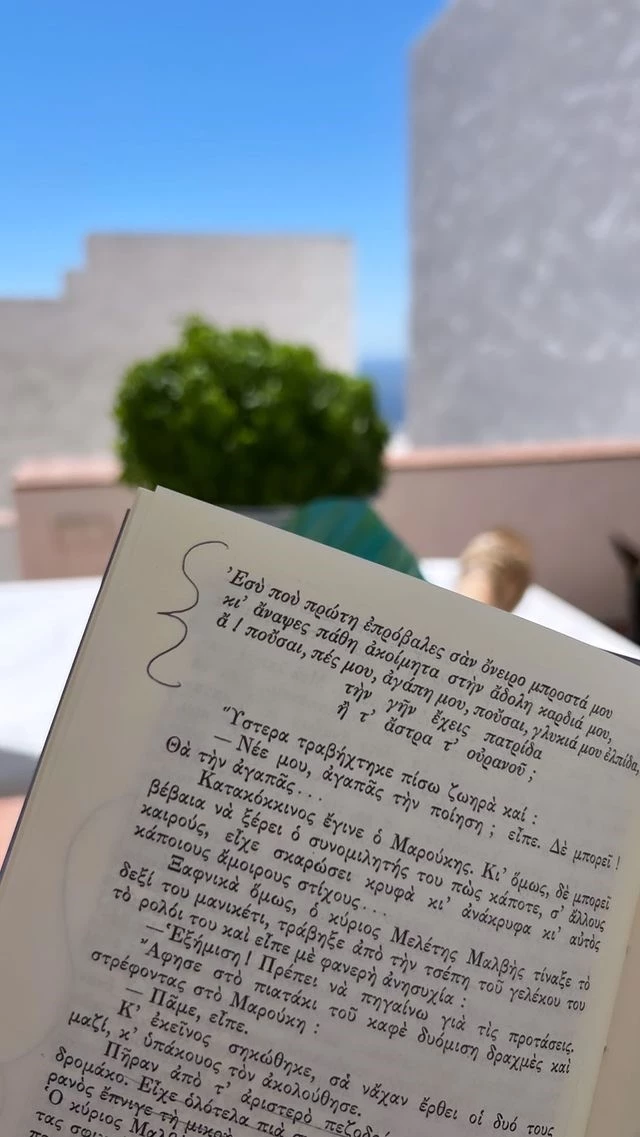 Ἐσὺ ποὺ πρώτη ἐπρόβαλες σὰν ὄνειρο μπροστά μου
κι' ἄναψες πάθη ἀκοίμητα στὴν ἄδολη καρδιά μου,
ἄ! ποῦσαι, πές μου, ἀγάπη μου, ποῦσαι, γλυκιά μου ἐλπίδα,
τὴν γῆν ἔχεις πατρίδα
ἢ τ' ἄστρα τ' οὐρανοῦ;
Ὕστερα τραβήχτηκε πίσω ζωηρὰ καί:
— Νέε μου, ἀγαπᾶς τὴν ποίηση; εἶπε. Δὲ μπορεῖ!
Θὰ τὴν ἀγαπᾶς...
Κατακόκκινος ἔγινε ὁ Μαρούκης. Κι' ὅμως, δὲ μπορεῖ
βέβαια νὰ ξέρει ὁ συνομιλητής του πὼς κάποτε, σ' ἄλλους
καιρούς, εἶχε σκαρώσει κρυφὰ κι' ἀνάκρυφα κι' αὐτὸς
κάποιους ἄμοιρους στίχους...
Ξαφνικὰ ὅμως, ὁ κύριος Μελέτης Μαλβὴς τίναξε τὸ
δεξί του μανικέτι, τράβηξε ἀπὸ τὴν τσέπη τοῦ γελέκου του
τὸ ρολόι του καὶ εἶπε μὲ φανερὴ ἀνησυχία:
— Ἐξήμιση! Πρέπει νὰ πηγαίνω γιὰ τὶς προτάσεις.
Ἄφησε στὸ πιατάκι τοῦ καφὲ δυόμιση δραχμὲς καὶ
στρέφοντας στὸ Μαρούκη:
— Πᾶμε, εἶπε.
Κ' ἐκεῖνος σηκώθηκε, σὰ νἄχαν ἔρθει οἱ δυό τους
μαζί, κ' ὑπάκουος τὸν ἀκολούθησε.
Πῆραν ἀπὸ τ' ἀριστερὸ
δρομάκο. Εἶχε ὁλότελα πιὰ
ρανὸς ἔπνιγε τὴ
Ὁ κύριος
τας